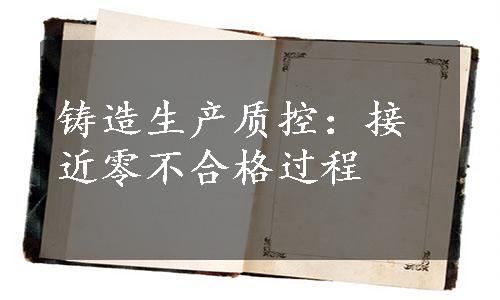 铸造生产质控：接
近零不合格过程